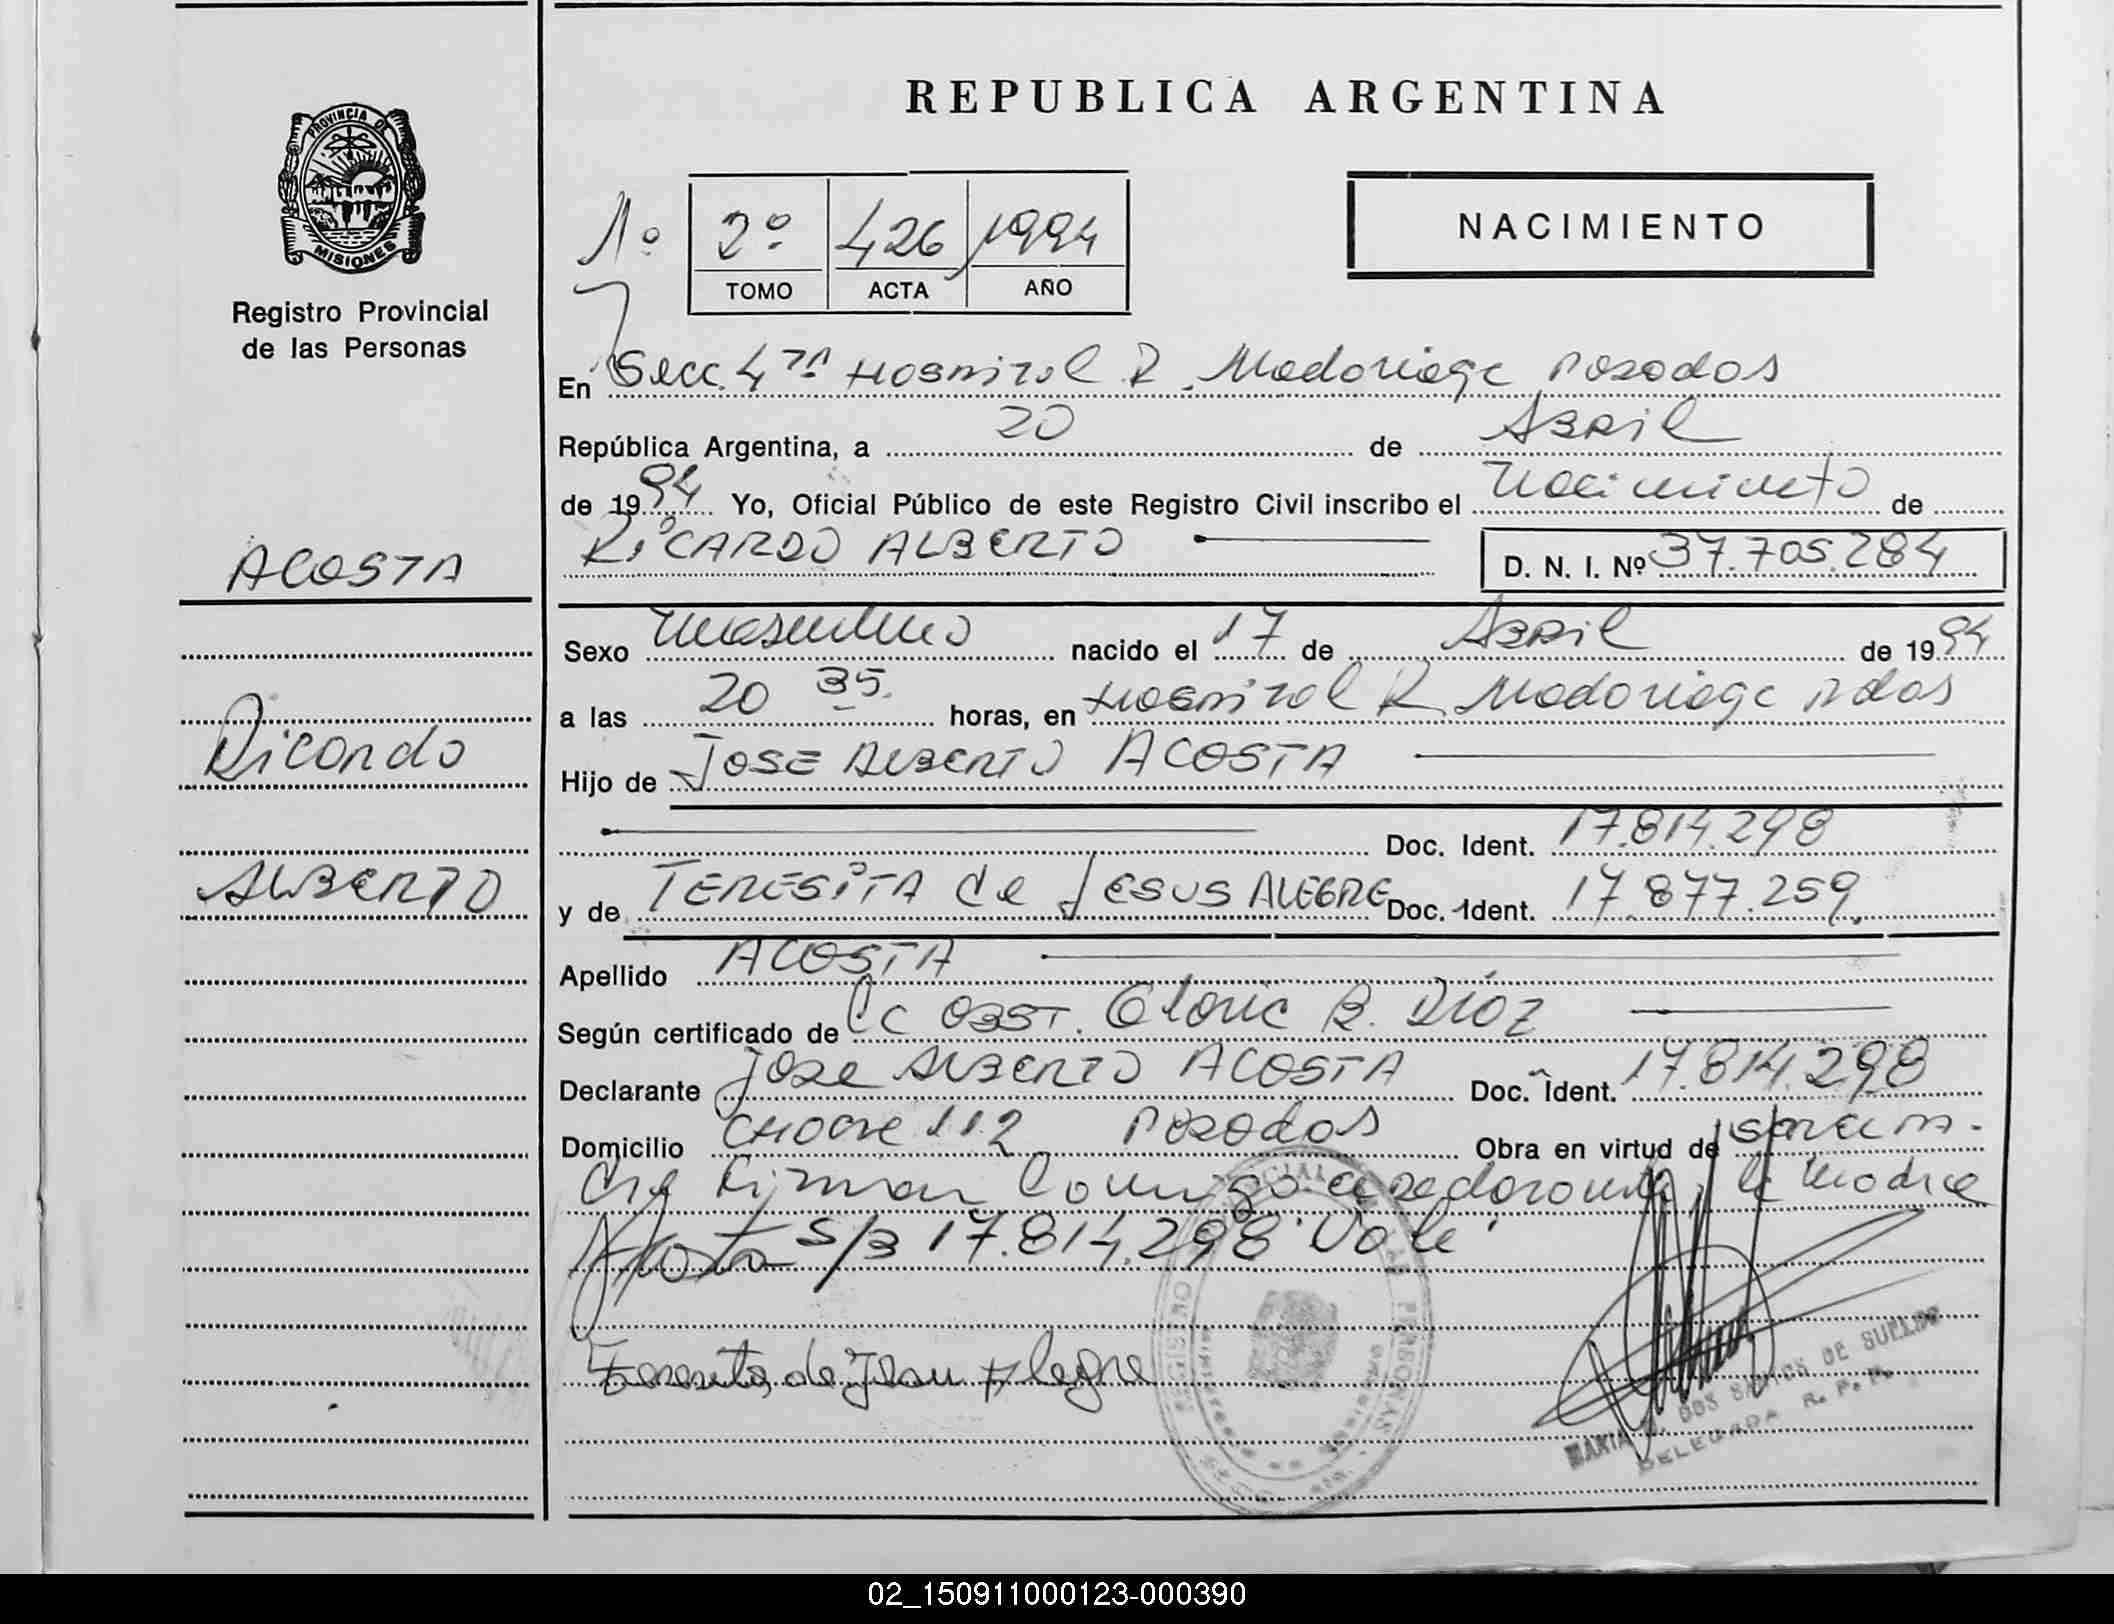 REPUBLICA ARGENTINA
PROVINCIA DE
MISIONES
Registro Provincial
de las Personas
Nº 2º 426 1994
TOMO ACTA AÑO
NACIMIENTO
En Secc. 4ta Hospital R. Madariaga Posadas
República Argentina, a 20 de Abril
de 1994 Yo, Oficial Público de este Registro Civil inscribo el Nacimiento de
RICARDO ALBERTO
D. N. I. Nº 37.705.284
ACOSTA
Sexo masculino nacido el 17 de Abril de 1994
a las 20 35 horas, en Hospital R. Madariaga Pdas
Ricardo
Hijo de JOSE ALBERTO ACOSTA
Doc. Ident. 17.814.298
ALBERTO
y de TERESITA de JESUS ALEGRE Doc. Ident. 17.877.259
Apellido ACOSTA
Según certificado de OBST. Gloria B. Díaz
Declarante Jose ALBERTO ACOSTA Doc. Ident. 17.814.298
Domicilio 112 Posadas Obra en virtud de
Firman la madre
Acosta S/B 17.814.298 "Vale"
Teresita de Jesus Alegre
REGISTRO PERSONAS
MARIA DOS SANTOS DE
DELEGADA R. P. P.
02_150911000123-000390